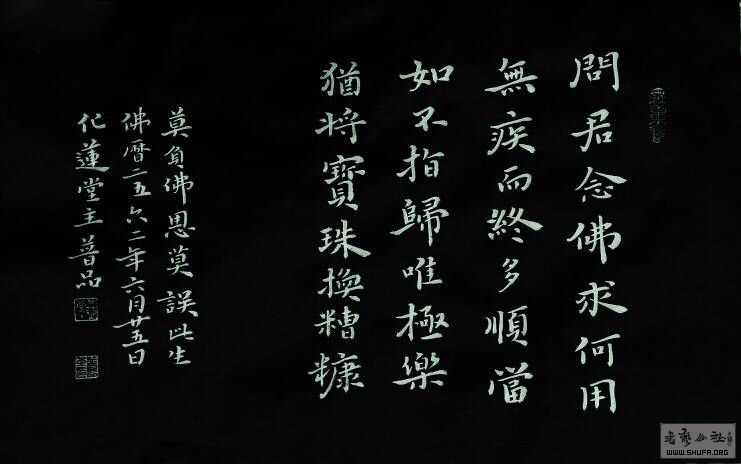 問君念佛求何用
無疾而終多順當
如不指歸唯極樂
猶將寶珠換糟糠
莫負佛恩莫誤此生
佛曆二五六二年六月廿五日
化蓮堂主普品
書藝公社
WWW.SHUFA.ORG